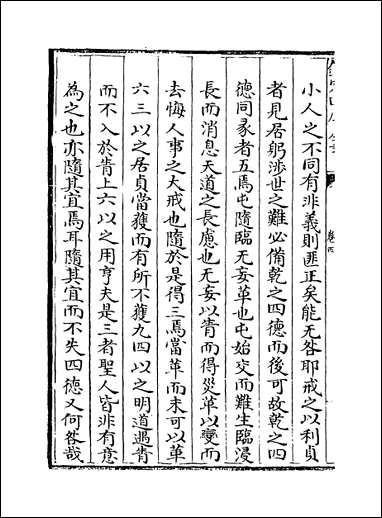 小人之不同有非義則匪正矣能无咎耶戒之以利貞
者見居躬涉世之難必備乾之四德而後可故乾之四
德同彖者五焉屯隨臨无妄革也屯始交而難生臨浸
長而消息天道之長慮也无妄以眚而得災革以變而
去悔人事之大戒也隨於是得三焉當革而未可以革
六三以之居貞當獲而有所不獲九四以之明道遇眚
而不入於眚上六以之用亨夫是三者聖人皆非有意
為之也亦隨其宜焉耳隨其宜而不失四德又何咎哉
卷四